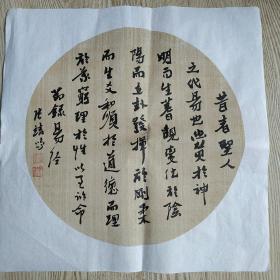 昔者聖人
之作易也幽贊於神
明而生蓍觀變化於陰
陽而立卦發揮於剛柔
而生爻和順於道德而理
於義窮理於性以至於命
節錄易經